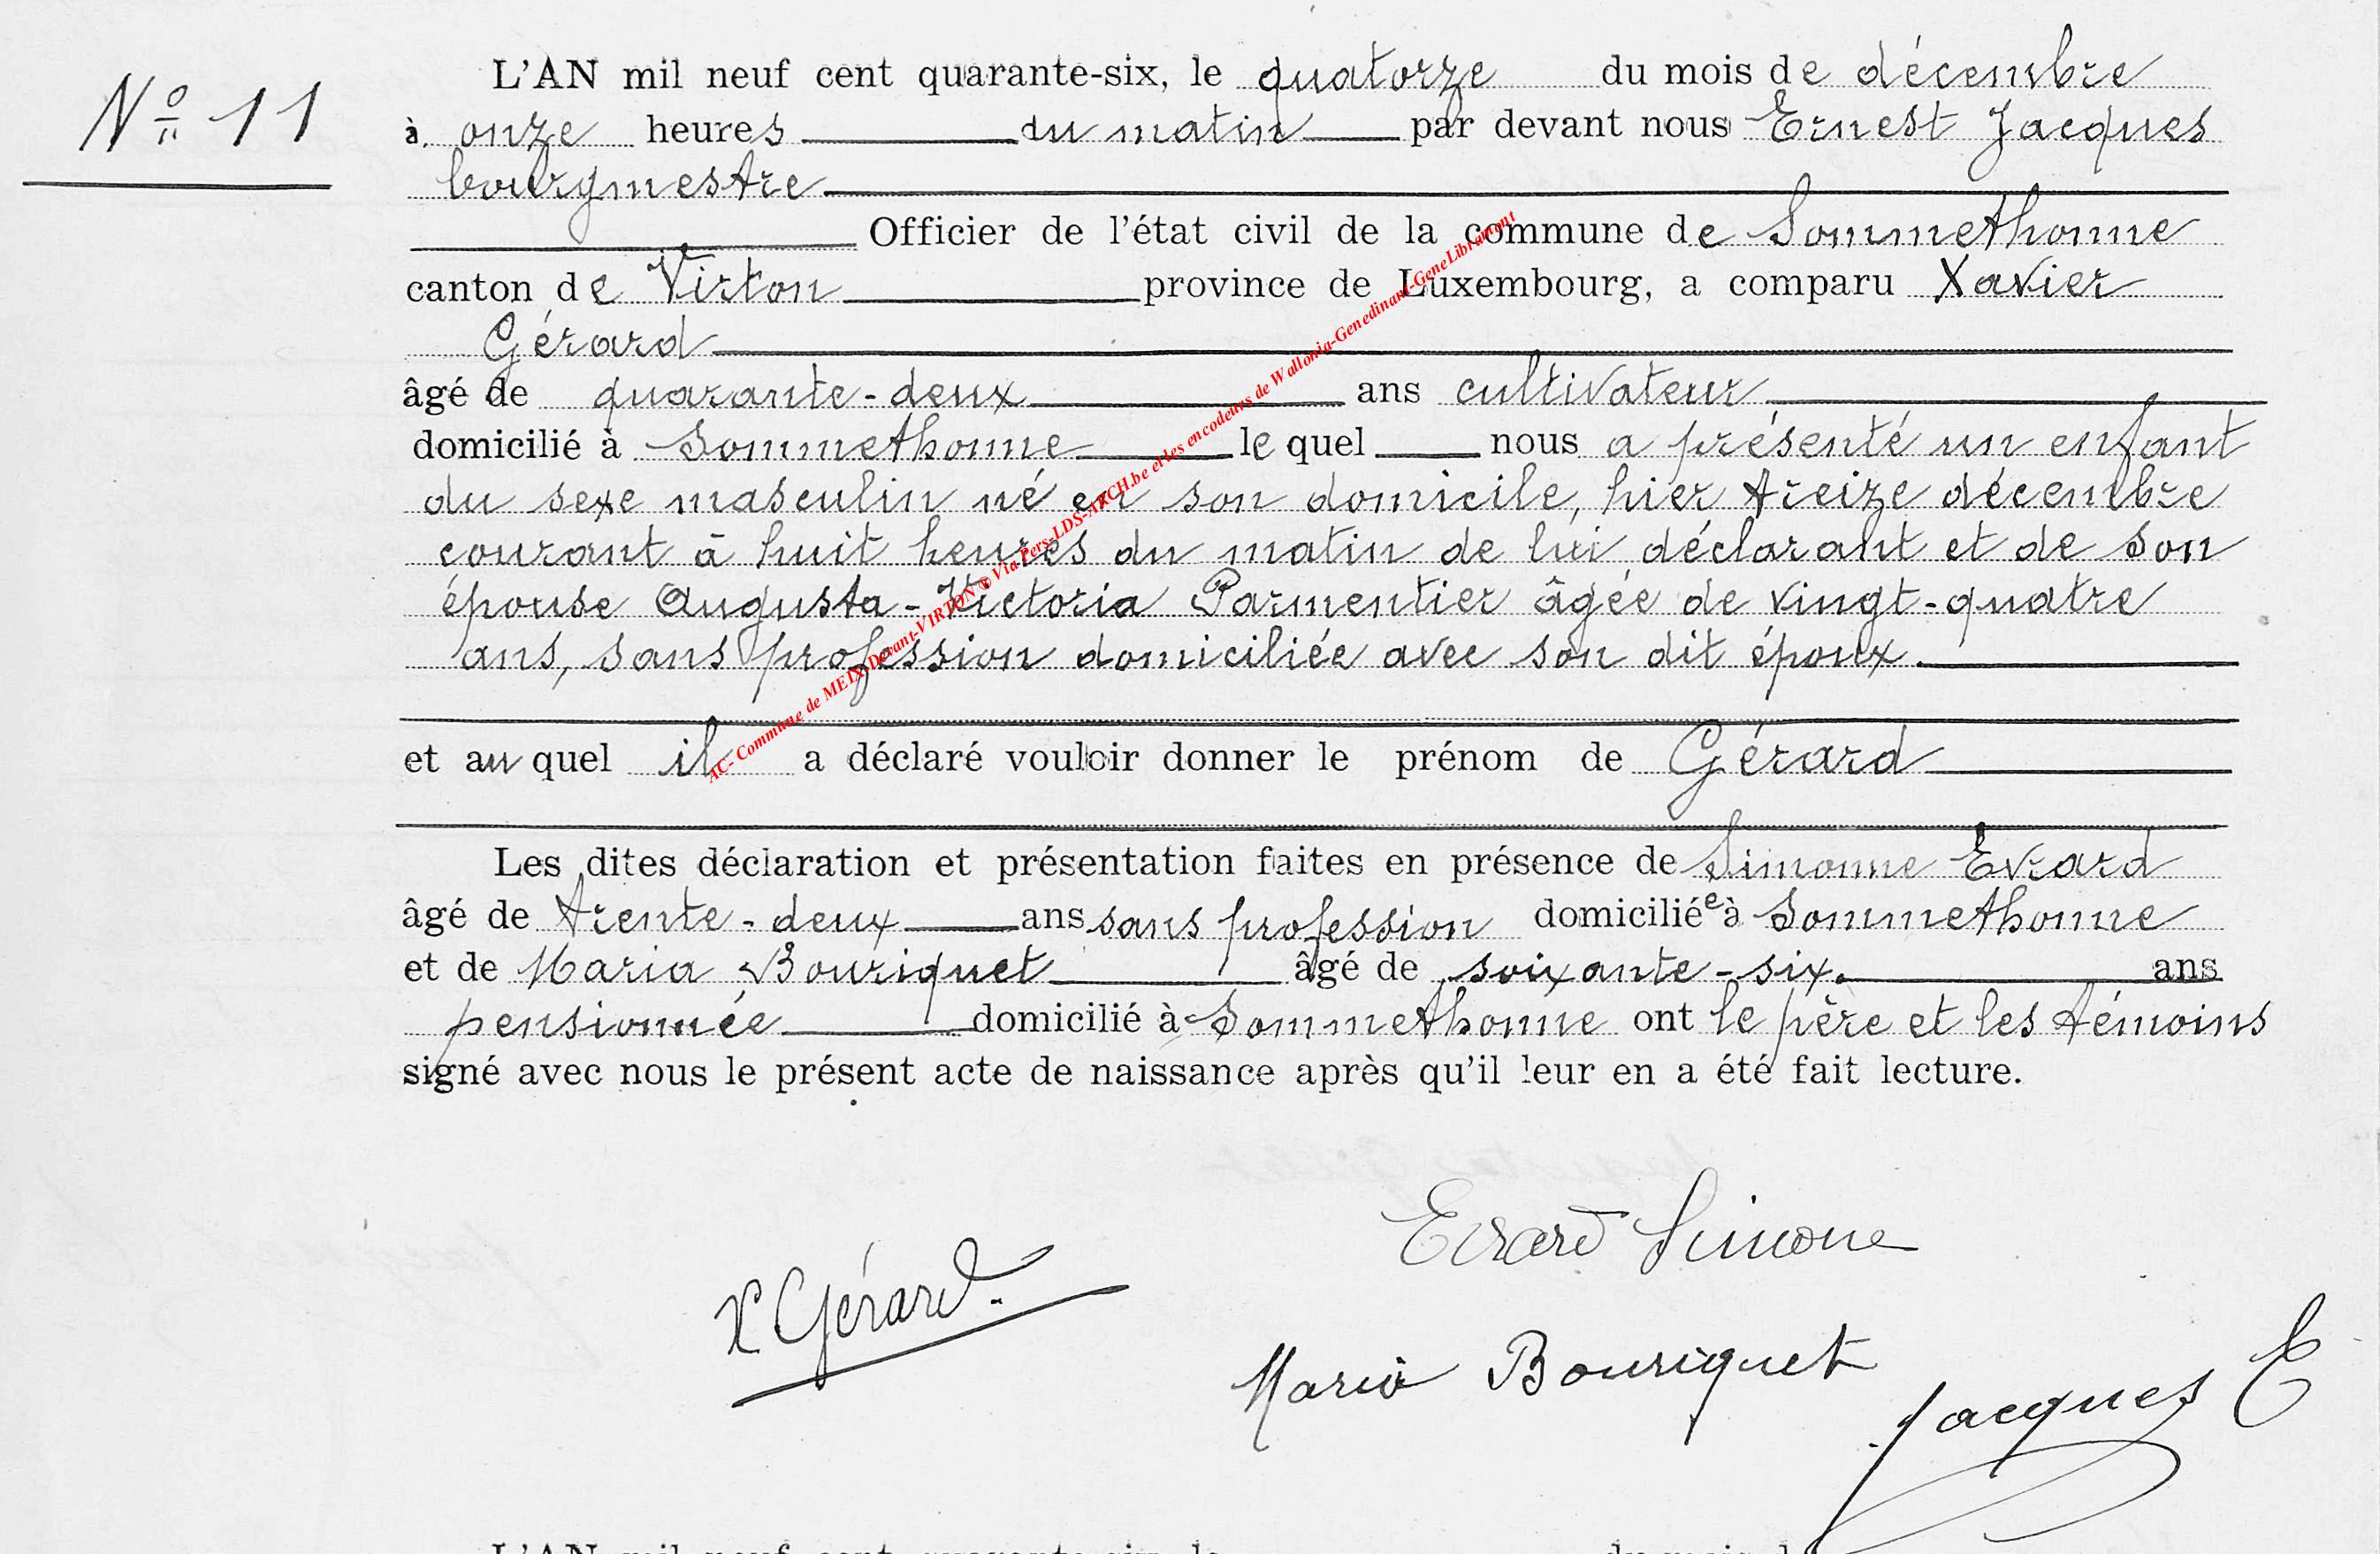 N° 11
L'AN mil neuf cent quarante-six, le quatorze du mois de décembre
à onze heures du matin par devant nous Ernest Jacques
bourgmestre
Officier de l'état civil de la commune de Sommethonne
canton de Virton province de Luxembourg, a comparu Xavier
Gérard
âgé de quarante-deux ans cultivateur
domicilié à Sommethonne lequel nous a présenté un enfant
du sexe masculin né en son domicile, hier treize décembre
courant à huit heures du matin de lui déclarant et de son
épouse Augusta-Victoria Parmentier âgée de vingt-quatre
ans, sans profession domiciliée avec son dit époux.
et auquel il a déclaré vouloir donner le prénom de Gérard
Les dites déclaration et présentation faites en présence de Simonne Evrard
âgé de trente-deux ans sans profession domiciliée à Sommethonne
et de Maria Bouriquet âgé de soixante-six. ans
pensionnée domicilié à Sommethonne ont le père et les témoins
signé avec nous le présent acte de naissance après qu'il leur en a été fait lecture.
Evrard Simone
X Gérard
Maria Bouriquet
Jacques E
AC- Commune de MEIX-Devant-VIRTON © Via Pers-LDS-ARCH.be et les encodeurs de Wallonia-Genedinant-GeneLibramont
L'AN mil neuf cent quarante-six, le du mois d